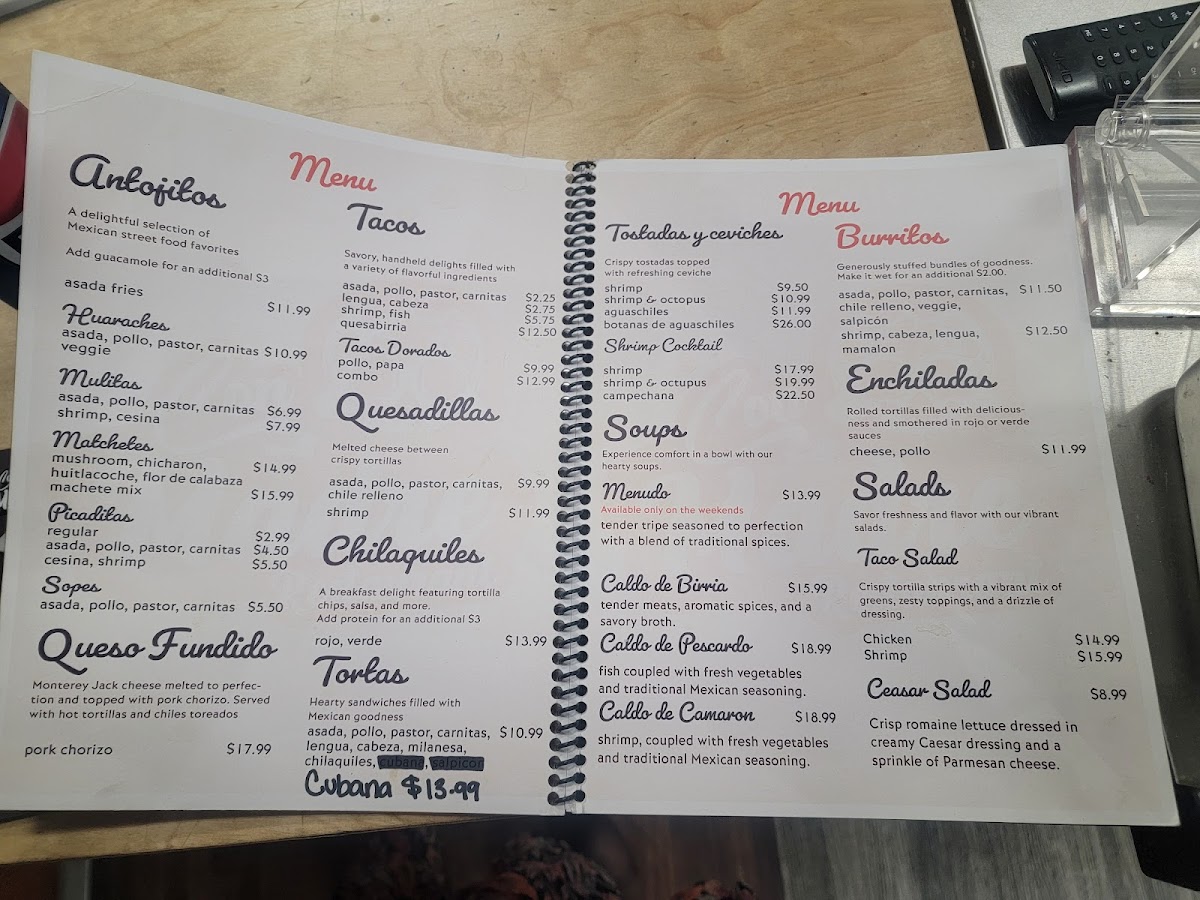 Menu
Antojitos
A delightful selection of
Mexican street food favorites
Add guacamole for an additional $3
asada fries
$11.99
Huaraches
asada, pollo, pastor, carnitas $10.99
veggie
Mulitas
asada, pollo, pastor, carnitas $6.99
shrimp, cesina $7.99
Matchetes
mushroom, chicharon, $14.99
huitlacoche, flor de calabaza
machete mix $15.99
Picaditas
regular $2.99
asada, pollo, pastor, carnitas $4.50
cesina, shrimp $5.50
Sopes
asada, pollo, pastor, carnitas $5.50
Queso Fundido
Monterey Jack cheese melted to perfec-
tion and topped with pork chorizo. Served
with hot tortillas and chiles toreados
pork chorizo $17.99
Tacos
Savory, handheld delights filled with
a variety of flavorful ingredients
asada, pollo, pastor, carnitas $2.25
lengua, cabeza $2.75
shrimp, fish $5.75
quesabirria $12.50
Tacos Dorados
pollo, papa $9.99
combo $12.99
Quesadillas
Melted cheese between
crispy tortillas
asada, pollo, pastor, carnitas, $9.99
chile relleno
shrimp $11.99
Chilaquiles
A breakfast delight featuring tortilla
chips, salsa, and more.
Add protein for an additional $3
rojo, verde $13.99
Tortas
Hearty sandwiches filled with
Mexican goodness
asada, pollo, pastor, carnitas, $10.99
lengua, cabeza, milanesa,
chilaquiles, cubana, salpicon
Cubana $13.99
Menu
Tostadas y ceviches
Crispy tostadas topped
with refreshing ceviche
shrimp $9.50
shrimp & octopus $10.99
aguaschiles $11.99
botanas de aguaschiles $26.00
Shrimp Cocktail
shrimp $17.99
shrimp & octupus $19.99
campechana $22.50
Soups
Experience comfort in a bowl with our
hearty soups.
Menudo $13.99
Available only on the weekends
tender tripe seasoned to perfection
with a blend of traditional spices.
Caldo de Birria $15.99
tender meats, aromatic spices, and a
savory broth.
Caldo de Pescardo $18.99
fish coupled with fresh vegetables
and traditional Mexican seasoning.
Caldo de Camaron $18.99
shrimp, coupled with fresh vegetables
and traditional Mexican seasoning.
Burritos
Generously stuffed bundles of goodness.
Make it wet for an additional $2.00.
asada, pollo, pastor, carnitas, $11.50
chile relleno, veggie,
salpicón
shrimp, cabeza, lengua, $12.50
mamalon
Enchiladas
Rolled tortillas filled with delicious-
ness and smothered in rojo or verde
sauces
cheese, pollo $11.99
Salads
Savor freshness and flavor with our vibrant
salads.
Taco Salad
Crispy tortilla strips with a vibrant mix of
greens, zesty toppings, and a drizzle of
dressing.
Chicken $14.99
Shrimp $15.99
Ceasar Salad $8.99
Crisp romaine lettuce dressed in
creamy Caesar dressing and a
sprinkle of Parmesan cheese.